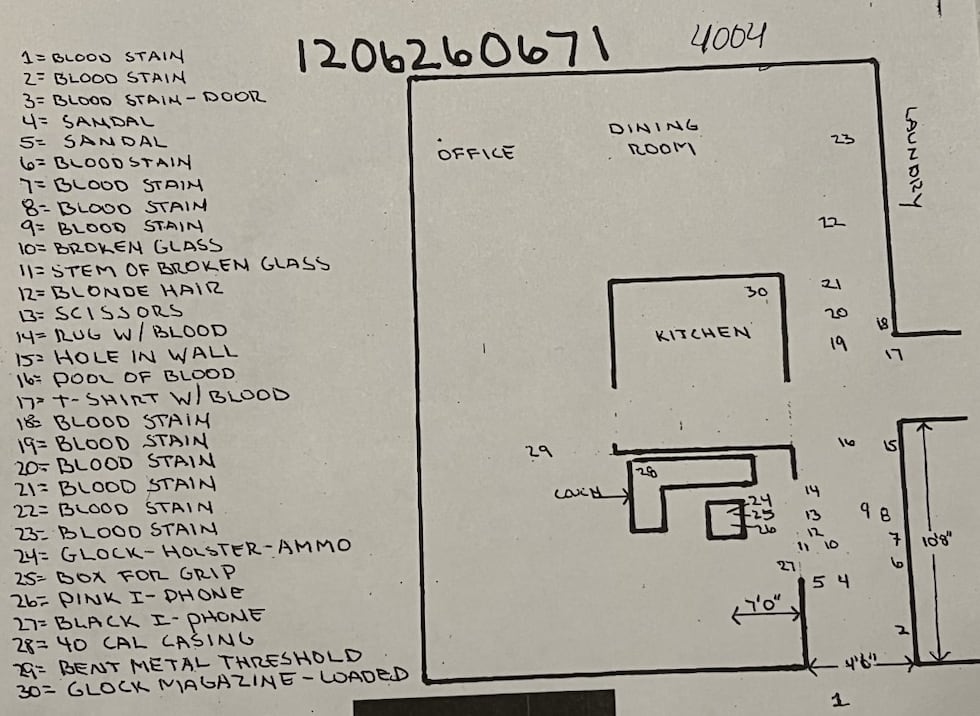 1206260671 4004
1= BLOOD STAIN
2= BLOOD STAIN
3= BLOOD STAIN-DOOR
4= SANDAL
5= SANDAL
6= BLOODSTAIN
7= BLOOD STAIN
8= BLOOD STAIN
9= BLOOD STAIN
10= BROKEN GLASS
11= STEM OF BROKEN GLASS
12= BLONDE HAIR
13= SCISSORS
14= RUG W/ BLOOD
15= HOLE IN WALL
16= POOL OF BLOOD
17= T-SHIRT W/ BLOOD
18= BLOOD STAIN
19= BLOOD STAIN
20= BLOOD STAIN
21= BLOOD STAIN
22= BLOOD STAIN
23= BLOOD STAIN
24= GLOCK-HOLSTER-AMMO
25= BOX FOR GRIP
26= PINK I-PHONE
27= BLACK I-PHONE
28= 40 CAL CASING
29= BENT METAL THRESHOLD
30= GLOCK MAGAZINE-LOADED
OFFICE
DINING
ROOM
23
LAUNDRY
22
30
21
20
KITCHEN
19
18
17
29
16
15
28
COUCH
14
24
25
26
13
12
11
10
9
8
7
6
10'8"
27
5
4
7'0"
2
4'6"
1